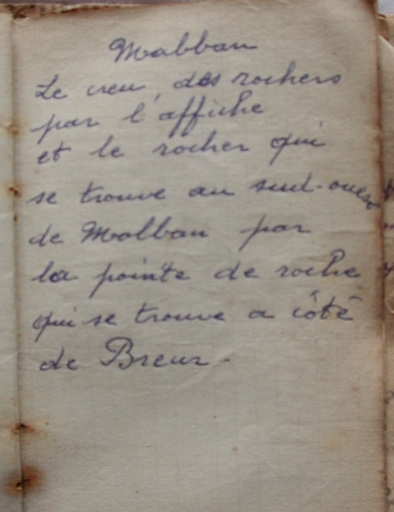 Malban
Le creu des rochers
par l'affiche
et le rocher qui
se trouve au sud-ouest
de Malban par
la pointe de roche
qui se trouve a côté
de Breur.